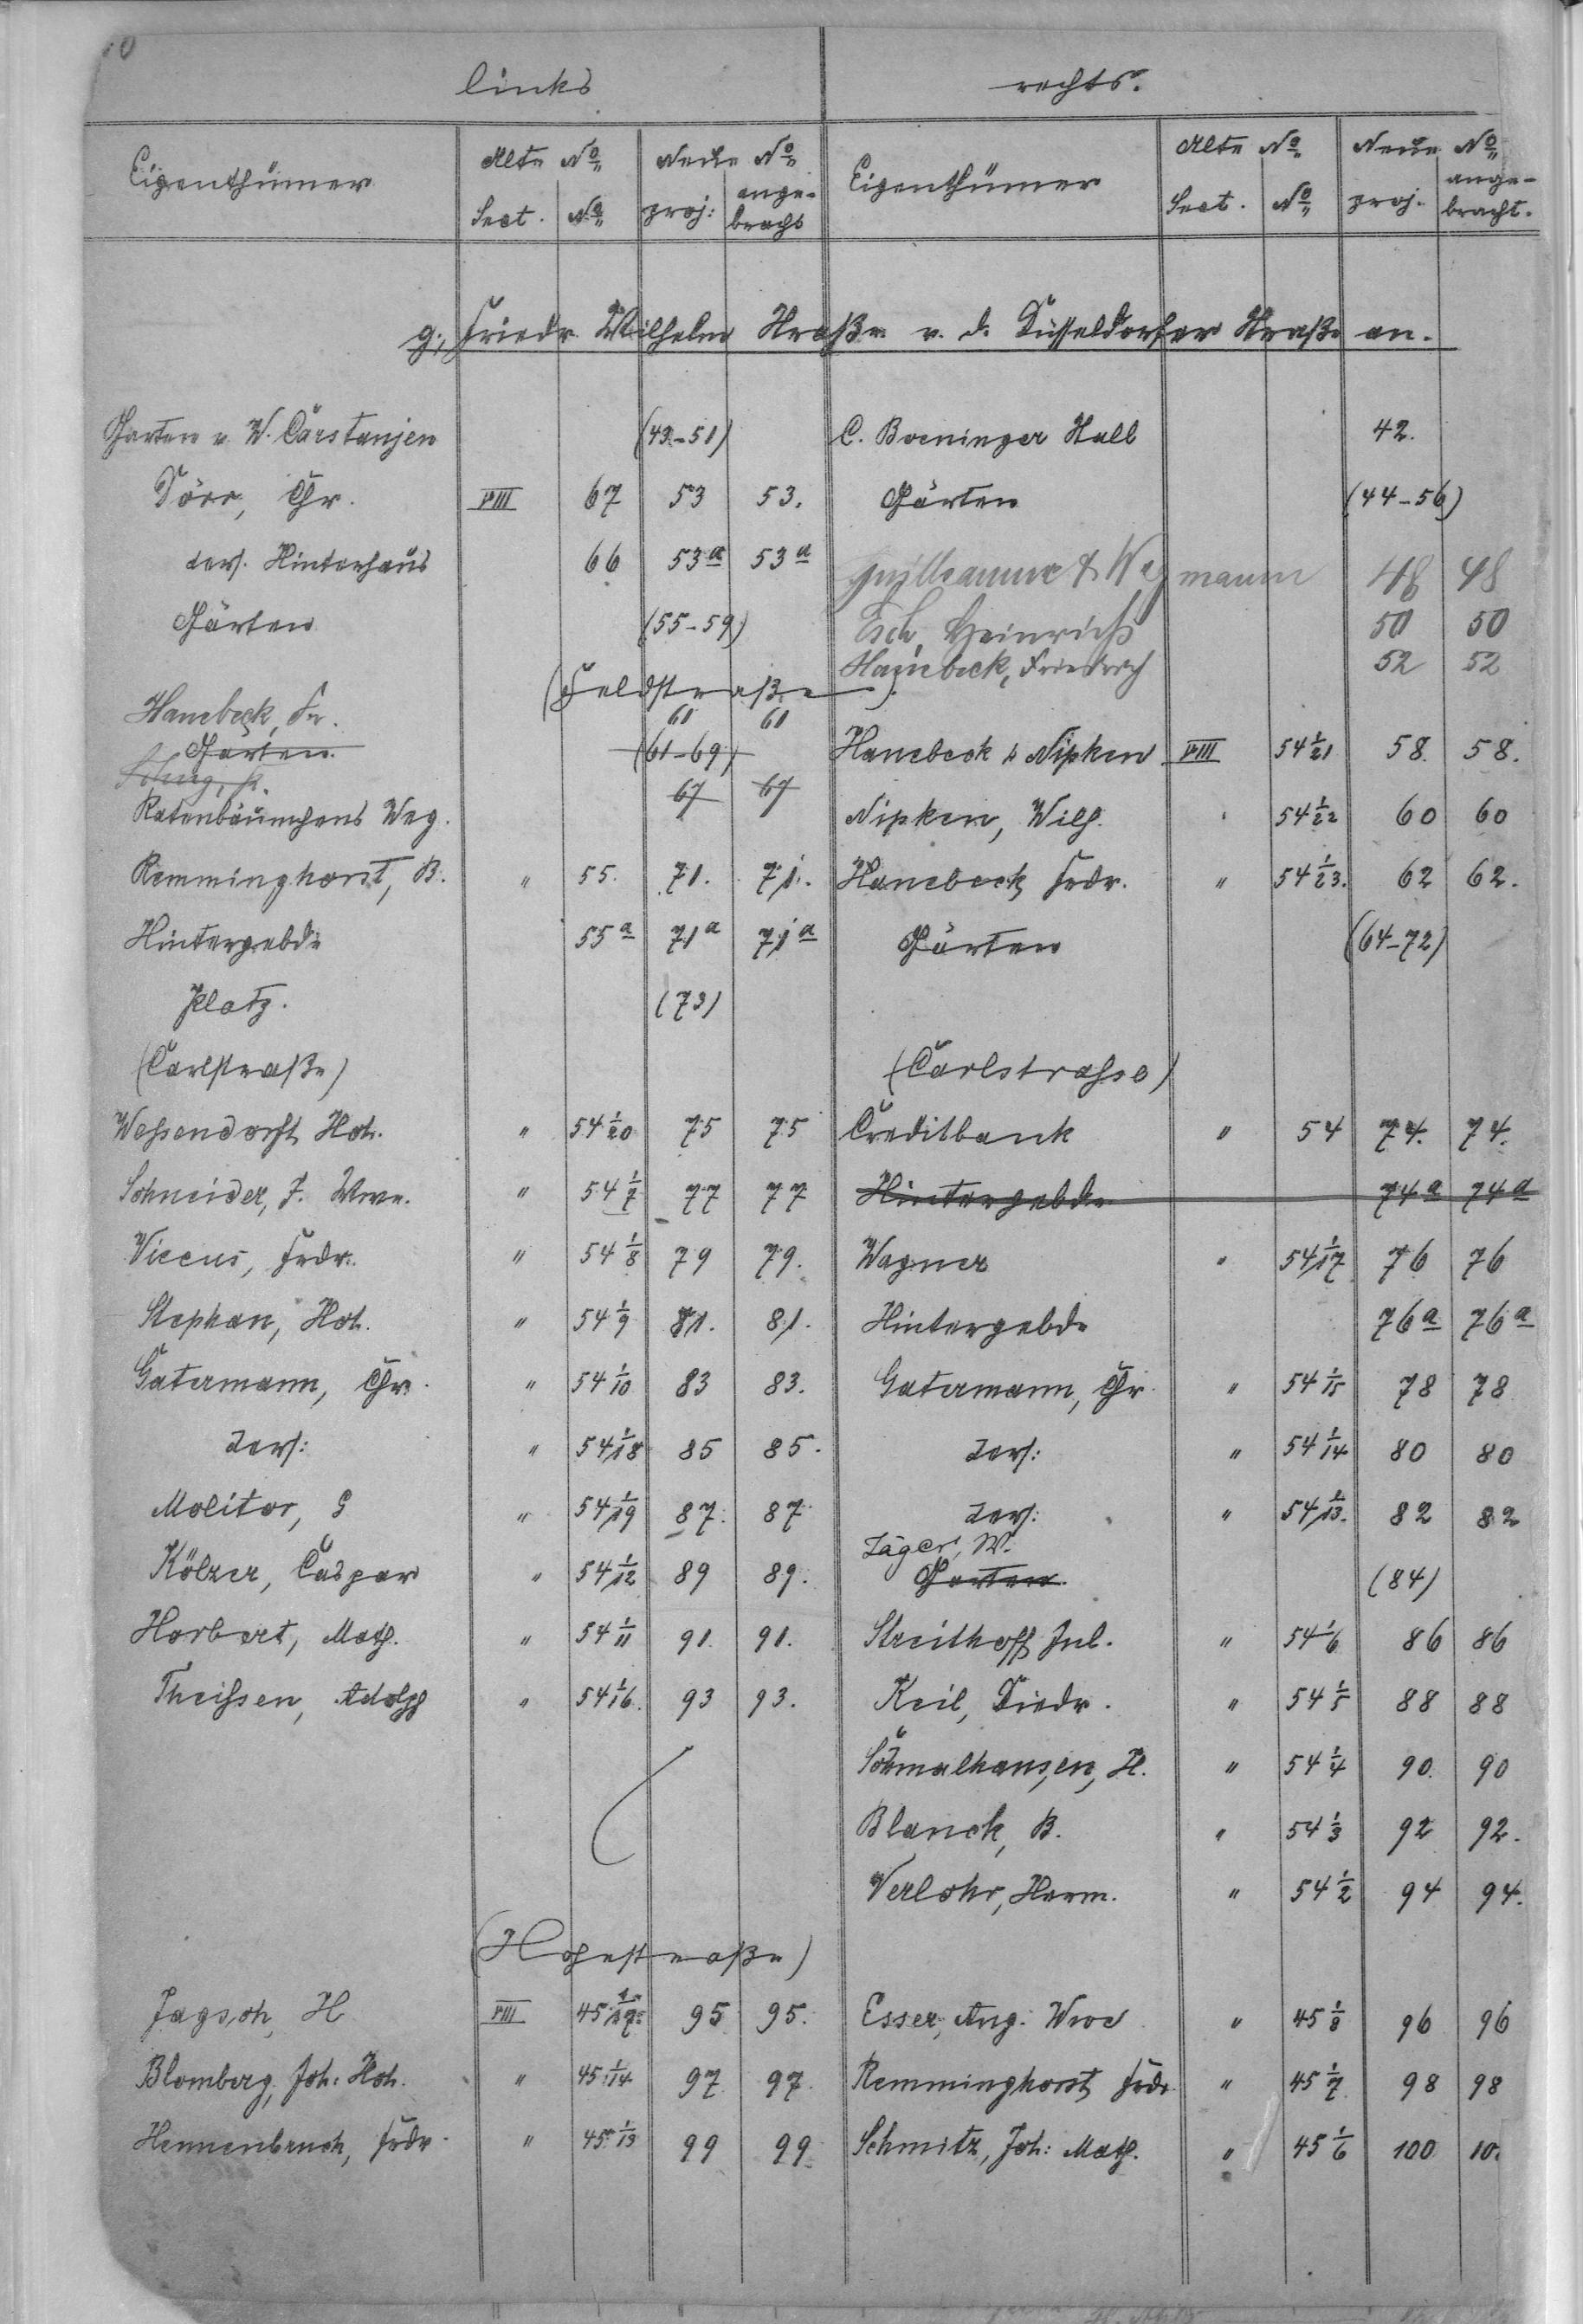 links rechts.
Eigenthümer Alte No Neue No Eigenthümer Alte No Neue No
Sect. No proj: ange-bracht Sect. No proj. ange-bracht.
g., Friedr. Wilhelm Straße v. d. Düsseldorfer Straße an.
Garten v. W. Carstanjen (43-51) C. Boeninger Stall 42.
Dörr, Chr. VIII 67 53 53. Gärten (44-56)
ders. Hinterhaus 66 53a 53a Guilleaume & Wegmann 48 48
Gärten (55-59) Esch, Heinrich 50 50
Hanebeck, Friedrich 52 52
(Feldstraße)
Hanebeck, Fr. 61 61
Garten. (61-69) Hanebeck & Nipken VIII 54 1/21 58. 58.
67 67
Ratenbäumchens Weg. Nipken, Wilh. " 54 1/22 60 60
Remminghorst, B. " 55. 71. 71. Hanebeck, Frdr. " 54 1/23. 62 62.
Hintergebde 55a 71a 71a Gärten (64-72)
Platz. (73)
(Carlstraße) (Carlstrasse)
Wessendorft Hch. " 54 1/20 75 75 Creditbank " 54 74. 74.
Schneider, J. Wwe. " 54 1/7 77 77 Hintergebde 74a 74a
Viccus, Frdr. " 54 1/8 79 79. Wagner " 54 1/17 76 76
Stephan, Hch. " 54 1/9 81. 81. Hintergebde 76a 76a
Gatermann, Chr. " 54 1/10 83 83. Gatermann, Chr. " 54 1/15 78 78
ders: " 54 1/18 85 85. ders: " 54 1/14 80 80
Molitor, G " 54 1/19 87. 87 ders: " 54 1/13. 82 82
Jäger, W.
Kölzer, Caspar " 54 1/12 89 89. Garten. (84)
Horbert, Math. " 54 1/11 91 91. Streithoff Jul. " 54 1/6 86 86
Theissen, Adolph " 54 1/16. 93 93. Keil, Diedr. " 54 1/5 88 88
Schmalhausen, H. " 54 1/4 90. 90
Blanck, B. " 54 1/3 92 92.
Verlohr, Herm. " 54 1/2 94 94.
(Hohestraße)
Jagsch, H VIII 45 95 95. Esser, Aug. Wwe " 45 1/8 96 96
Blomberg, Joh. Hch. " 45 1/14 97 97. Remminghorst, Frdr. " 45 1/7 98 98
Hennenbruch, Frdr. " 45 1/13 99 99 Schmitz, Joh: Math. " 45 1/6 100 10.